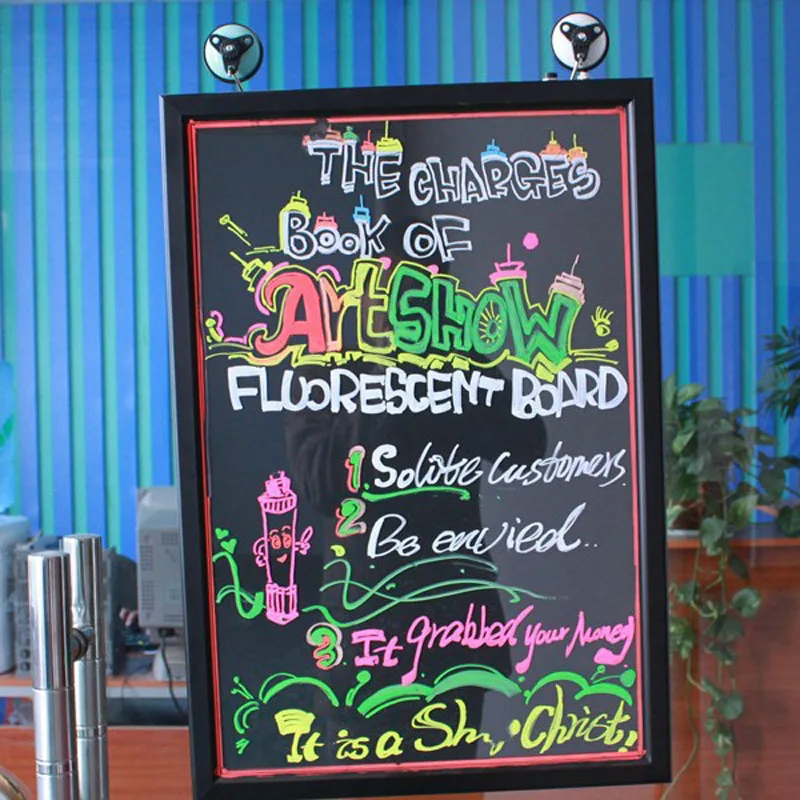 THE CHARGES
BOOK OF
ArtSHOW
FLUORESCENT BOARD
1. Solute customers.
2 Be envied..
3. It grabbed your Money
It is a Sh, Christ!